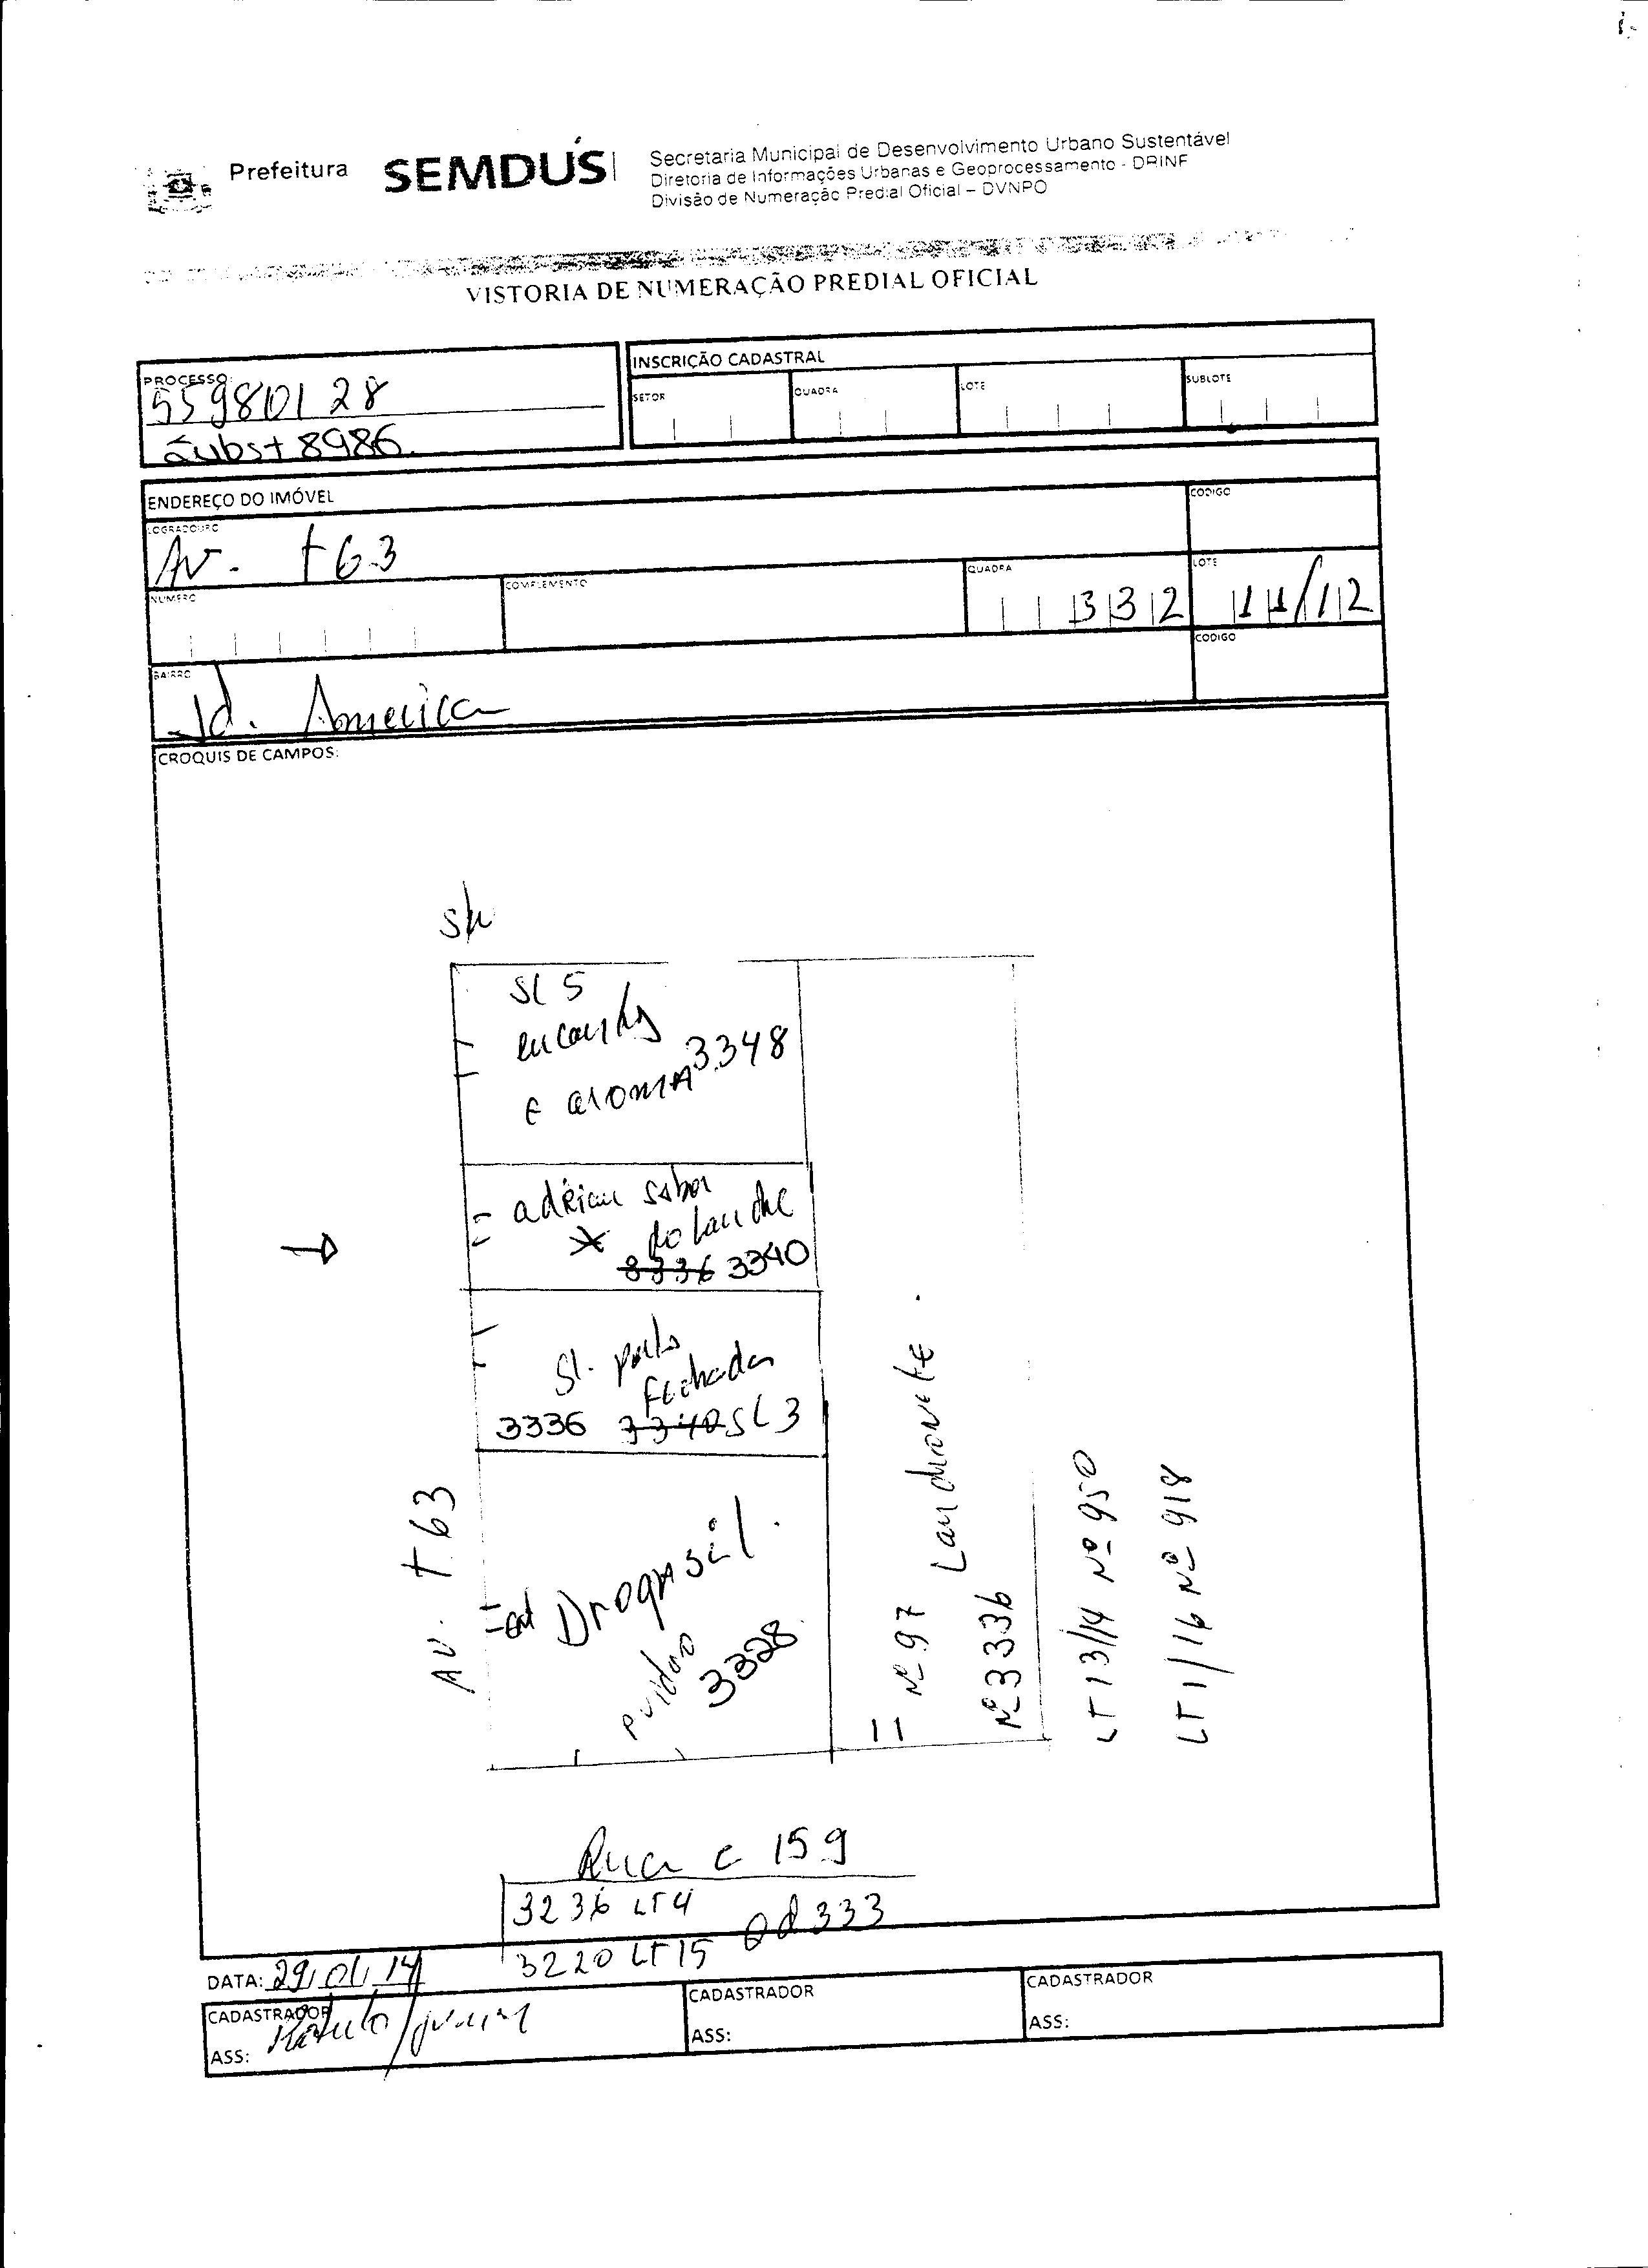 Prefeitura SEMDUS
Secretaria Municipal de Desenvolvimento Urbano Sustentável
Diretoria de Informações Urbanas e Geoprocessamento - DRINF
Divisão de Numeração Predial Oficial – DVNPO
VISTORIA DE NUMERAÇÃO PREDIAL OFICIAL
PROCESSO:
55980128
Subst 8986.
INSCRIÇÃO CADASTRAL
SETOR QUADRA LOTE SUBLOTE
ENDEREÇO DO IMÓVEL
LOGRADOURO
Av. T63
CODIGO
NUMERO
COMPLEMENTO
QUADRA
332
LOTE
11/12
BAIRRO
Jd. America
CODIGO
CROQUIS DE CAMPOS:
SL 5
E aroma 3348
sabor
3336 3340
Sl. porta
Fechada
3336 3340 SL3
Drogasil.
3328
AV. T63
Nº 97 Lanchonete
Nº 3336
LT 13/14 Nº 950
LT 1/16 Nº 918
Rua C 159
3236 LT4
Qd 333
3220 LT15
DATA: 29/01/14
CADASTRADOR
ASS:
CADASTRADOR
ASS:
CADASTRADOR
ASS: